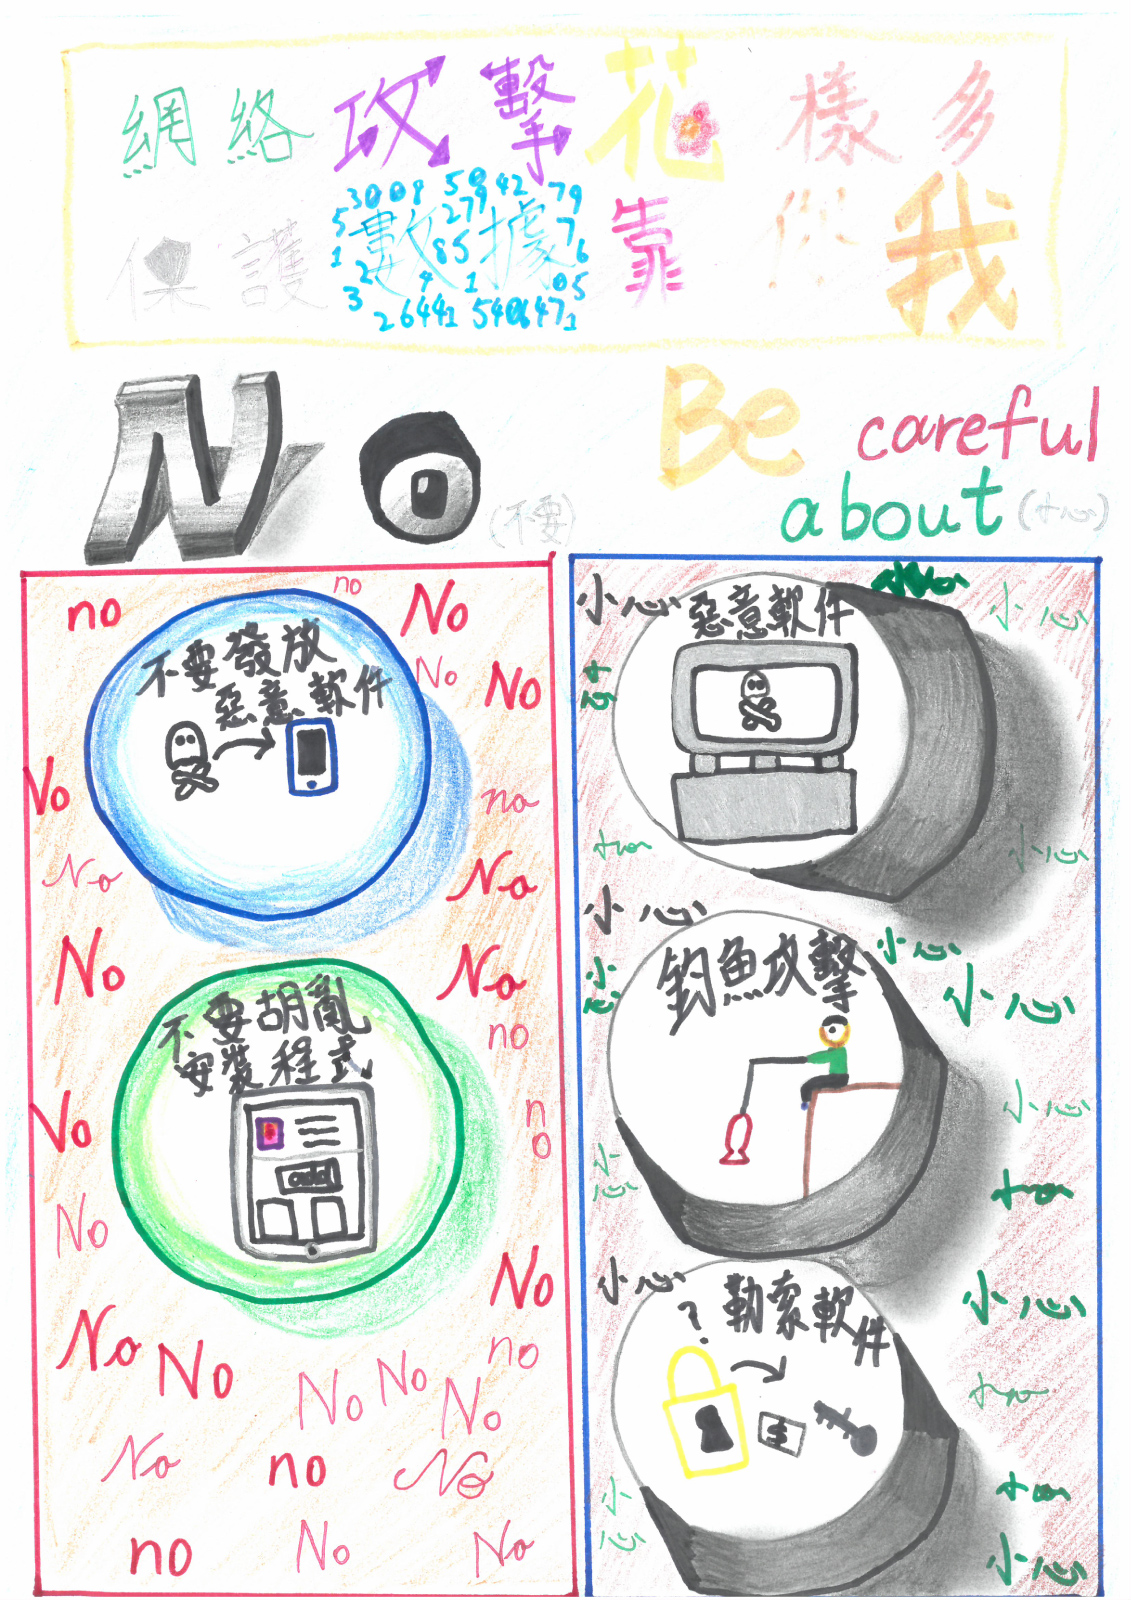 網絡攻擊花樣多
保護數據靠你我
3008 50 42 79
5 279 7
1 85 6
2 4 1 05
3 26441 540647 1
No (不要)
no
no
No
不要發放
惡意軟件
No
No
No
no
No
No
No
No
不要胡亂
安裝程式
add
no
No
no
No
No
No
No
no
No
No
No
No
no
No
no
No
No
Be careful
about (小心)
小心
惡意軟件
小心
小心
小心
小心
小心
釣魚攻擊
小心
小心
小心
小心
小心
小心
勒索軟件
?
$
小心
小心
小心